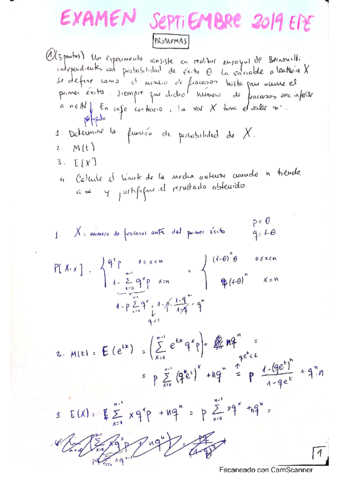 EXAMEN SEPTIEMBRE 2019 EPE
PROBLEMAS
① (3 puntos) Un experimento consiste en realizar ensayos de Bernoulli
independientes con probabilidad de éxito θ. La variable aleatoria X
se define como el número de fracasos hasta que ocurre el
primer éxito, siempre que dicho número de fracasos sea inferior
a n∈ℕ. En caso contrario, la var X toma el valor "n".
prefijado
1. Determine la función de probabilidad de X.
2. M(t)
3. E[X]
4. Calcule el límite de la media anterior cuando n tiende
a ∞ y justifique el resultado obtenido.
1. X = número de fracasos antes del primer éxito
p = θ
q = 1-θ
P[X=x] = { q^x p 0≤x<n = { (1-θ)^x θ 0≤x<n
1 - Σ_{x=0}^{n-1} q^x p x=n (1-θ)^n x=n
q<1
2. M(t) = E(e^{tX}) = (Σ_{x=0}^{n-1} e^{tx} q^x p) + nq^n =
qe^t<1
= p Σ_{x=0}^{n-1} (qe^t)^x + nq^n = p (1-(qe^t)^n)/(1-qe^t) + q^n n
3. E(X) = Σ_{x=0}^{n-1} x q^x p + nq^n = p Σ_{x=0}^{n-1} x q^x + nq^n =
1
Escaneado con CamScanner